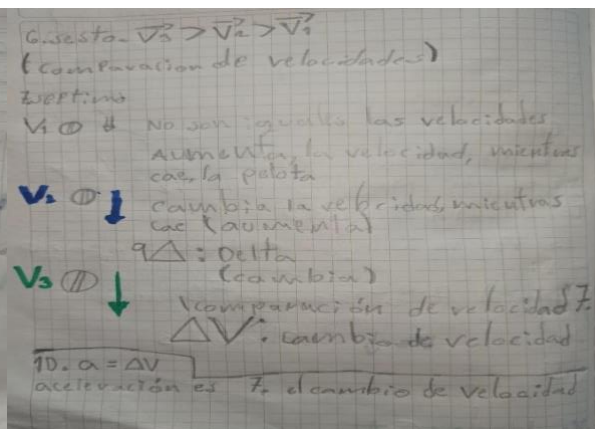 6. sesto. V₃ > V₂ > V₁
(comparacion de velocidades)
septimo
V₁ No son iguales las velocidades
Aumenta, la velocidad, mientras
cae, la pelota
V₂ cambia la velocidad, mientras
cae (aumenta)
9 Δ: Delta
(cambia)
V₃
(comparación de velocidad 7.
ΔV: cambio de velocidad
10. a = ΔV
aceleración es 7. el cambio de velocidad